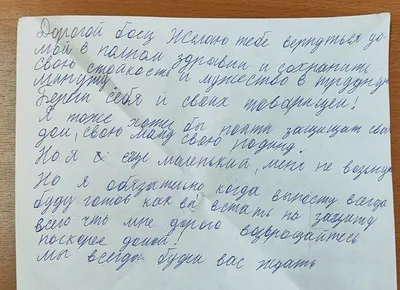 Дорогой боец Желаю тебе вернуться до
мой в полном здравии и сохранить
свою стойкость и мужество в трудную
минуту
Береги себя и своих товарищей!
Я тоже хотел бы пойти защищать свой
дом, свою маму свою родину.
Но я ещё маленький, меня не возьмут
Но я обязательно когда вырасту всегда
буду готов как вы встать на защиту
всего что мне дорого возвращайтесь
поскорее домой!
мы всегда будем вас ждать